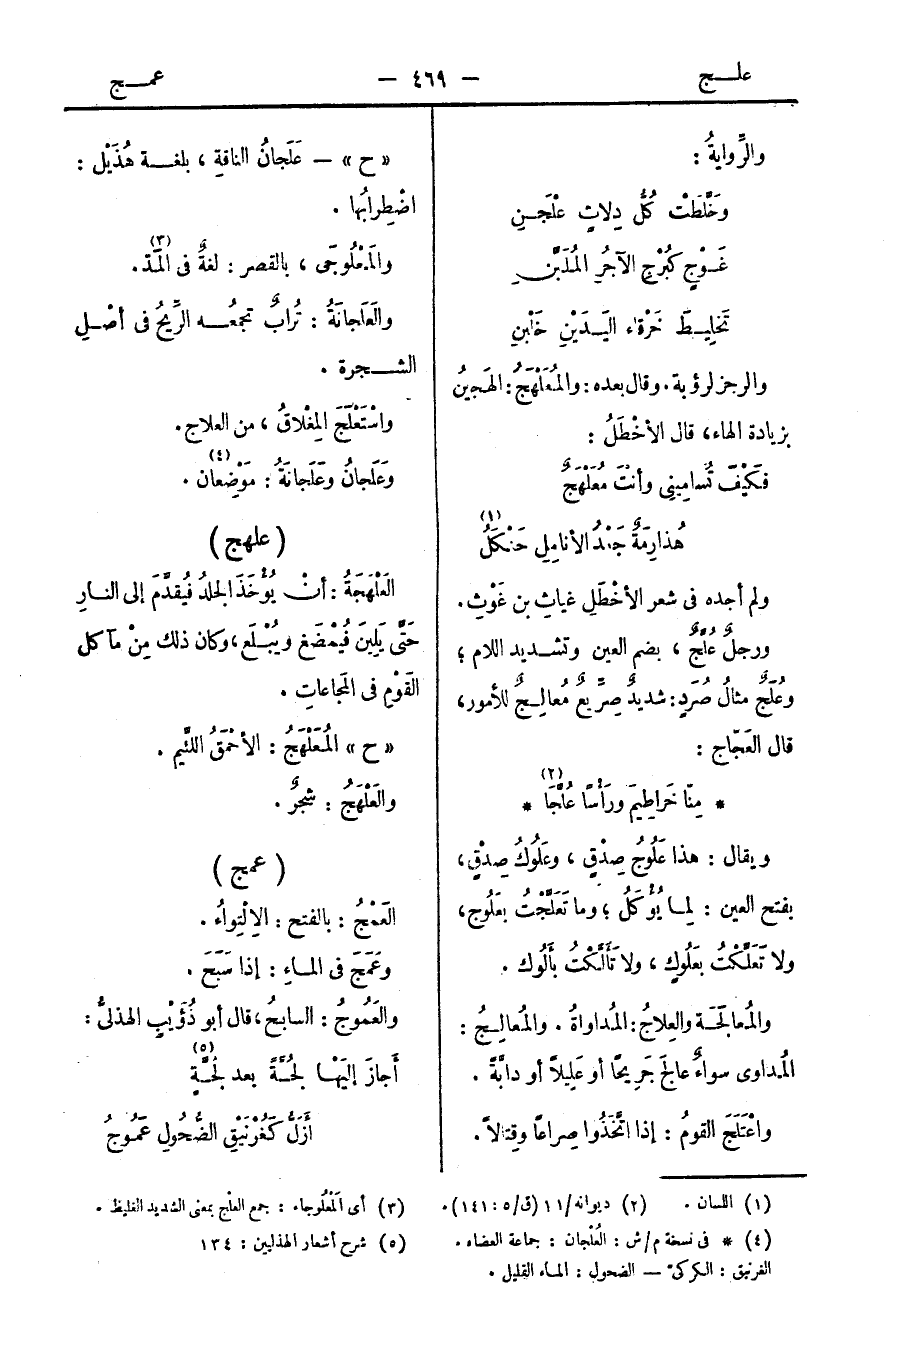 علـج — ٤٦٩ — عمـج
والرِّوايةُ :
وخَلَّطَتْ كُلُّ دِلاثٍ عَلْجَـنِ
غَـوْجٍ كبُرْجِ الآجُرِ المُلَبَّنِ
تَخْلِيـطَ خَرْقاءِ اليَـدَيْنِ خَلْبنِ
والرجز لرؤبة. وقال بعده : والمُعَلْهَجُ : الهَجِينُ
بزيادة الهاء، قال الأخْطَلُ :
فكَيْفَ تُسامِينِى وأنتَ مُعَلْهَجٌ
هُذارِمَةٌ جَعْدُ الأنامِلِ حَنْكَلُ (١)
ولم أجده فى شعر الأخْطَلِ غياثِ بن غَوْثٍ.
ورجلٌ عُلَّجٌ ، بضم العين وتشـديد اللام ؛
وعُلَجٌ مثالُ صُرَدٍ : شديدٌ صِرِّيعٌ مُعالِـجٌ للأمور،
قال العَجّاج :
* مِنّا خَراطِيمَ ورَأْسًا عُلَّجَا (٢) *
ويقال : هذا عَلُوجُ صِدْقٍ ، وعَلُوكُ صِدْقٍ،
بفتح العين : لِمـا يُؤْكَلُ ؛ وما تَعَلَّجْتُ بعَلُوجٍ،
ولا تَعَلَّكْتُ بعَلُوكٍ ، ولا تَأَلَّكْتُ بأَلُوك .
والمُعالَجَـة والعِلاجُ : المُداواةُ . والمُعالِـجُ :
المُداوِى سواءٌ عالجَ جَرِيحًا أو عَلِيلاً أو دابَّةً .
واعْتَلَجَ القومُ : إذا اتَّخَذُوا صِراعاً وقِتالاً.
« ح » — عَلَجانُ الناقةِ ، بلغـة هُذَيْل :
اضْطِرابُها .
والمَعْلُوجَى ، بالقصر : لغةٌ فى المَدّ (٣).
والعَلَجانَةُ : تُرابٌ تجمعُـه الرِّيحُ فى أصْـلِ
الشـجرة .
واسْتَعْلَجَ المِغْلاقُ ، من العلاج.
وعَلَجانُ وعَلَجانَةُ : مَوْضِعان (٤) .
( علهج )
العَلْهَجَةُ : أنْ يُؤْخَذَ الجلدُ فيُقدَّمَ إلى النـارِ
حَتَّى يَلِينَ فيُمْضَغ ويُبْـلَع، وكان ذلك مِنْ مآكل
القَوْمِ فى المَجاعاتِ .
« ح » المُعَلْهَجُ : الأحْمَقُ اللئيم .
والعَلْهَجُ : شجرٌ .
( عمج )
العَمْجُ : بالفتح : الإلْتِواءُ .
وعَمَجَ فى المـاءِ : إذا سَبَحَ .
والعَمُوجُ : السابحُ، قال أبو ذُؤَيْبٍ الهذلىُّ :
أَجازَ إليْهَـا لُجَّةً بعد لُجَّةٍ (٥)
أزَلُّ كغُرْنَيْقِ الضُّحُولِ عَمُوجُ
(١) اللسان . (٢) ديوانه / ١١ (ق/٥ : ١٤١). (٣) أى المَعْلُوجاء : جمع العِلْج بمعنى الشديد الغليظ .
(٤) * فى نسخة م/ش : العُلْجان : جماعة العضاه . (٥) شرح أشعار الهذليين : ١٣٤
الغرنيق : الكركىّ — الضحول : المـاء القليل .